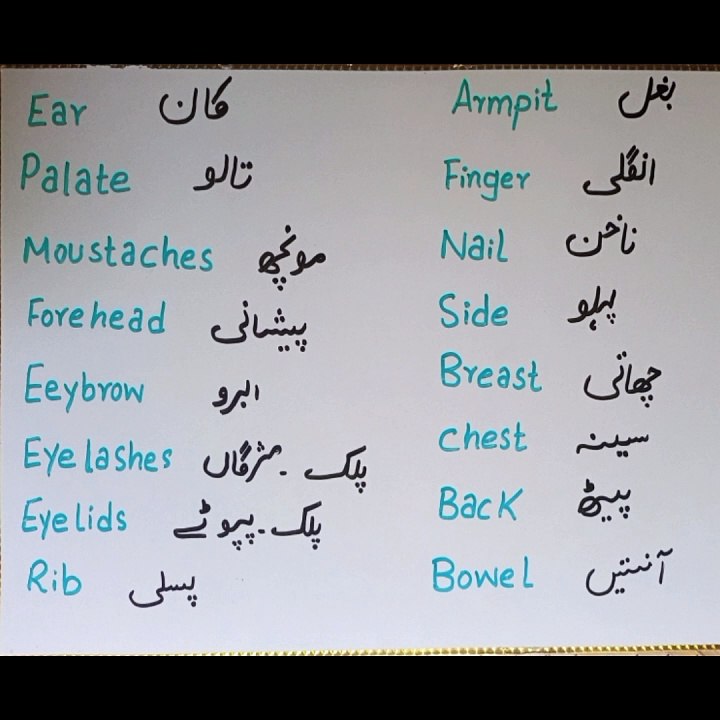 Ear کان
Palate تالو
Moustaches مونچھ
Forehead پیشانی
Eeybrow ابرو
Eyelashes پلک ۔ مژگاں
Eyelids پلک ۔ پپوٹے
Rib پسلی
Armpit بغل
Finger انگلی
Nail ناخن
Side پہلو
Breast چھاتی
chest سینہ
Back پیٹھ
Bowel آنتیں